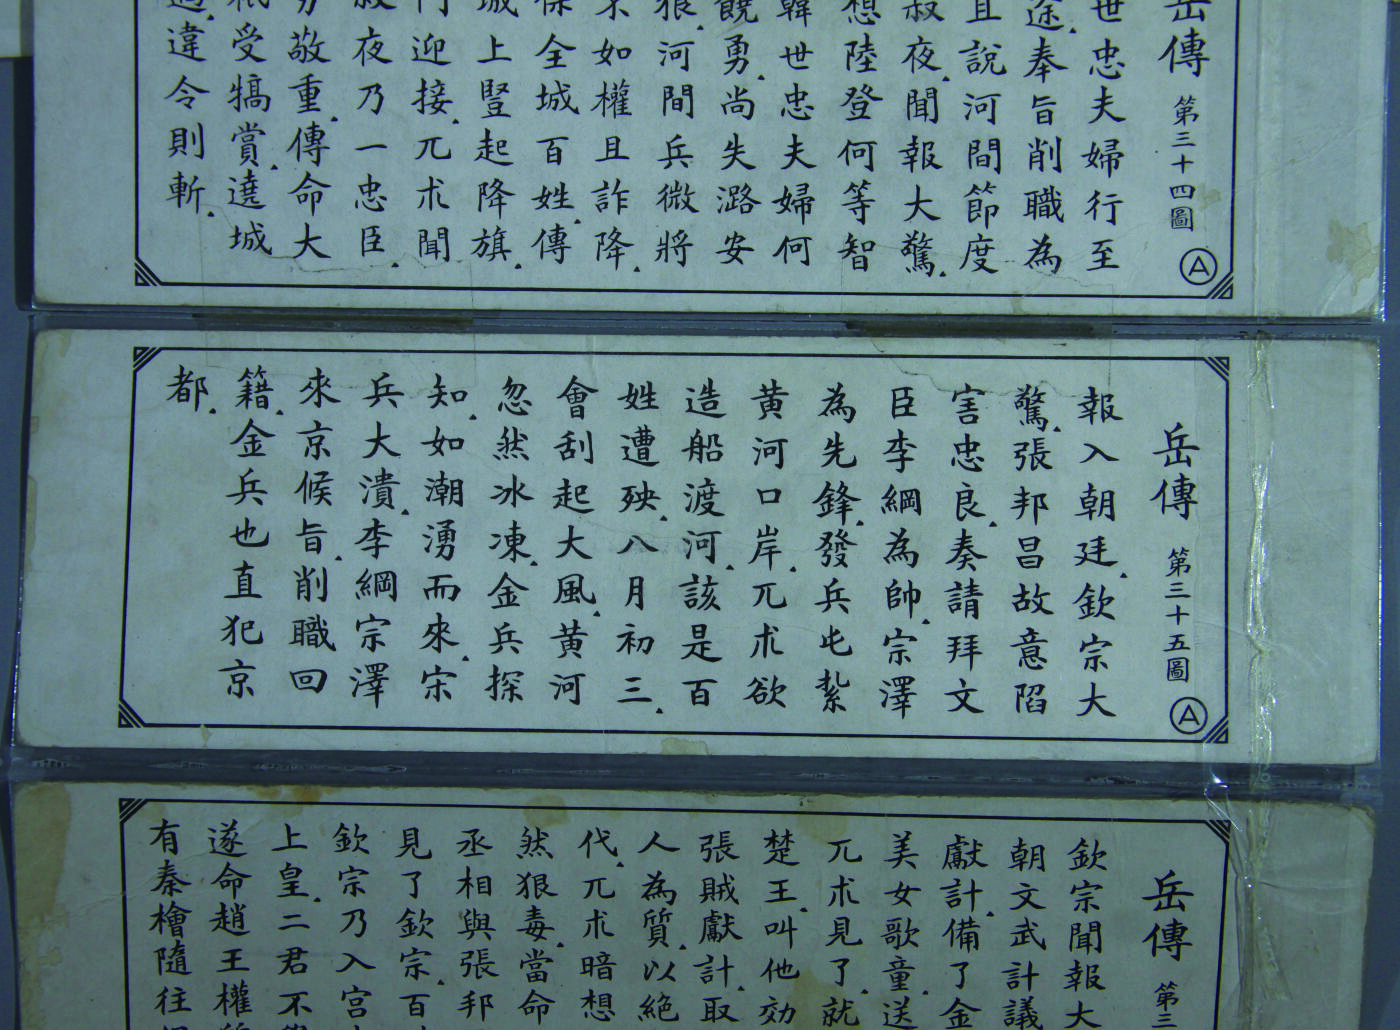 岳傳 第三十四圖 A
世忠夫婦行至
途.奉旨削職為
且說河間節度
叔夜.聞報大驚.
想陸登何等智
韓世忠夫婦何
饒勇.尚失潞安
狼.河間兵微將
如權且詐降.
保全城百姓.傳
城上豎起降旗.
門迎接.兀朮聞
叔夜乃一忠臣.
敬重.傳命大
受犒賞.遶城
違令則斬.
岳傳 第三十五圖 A
報入朝廷.欽宗大
驚.張邦昌故意陷
害忠良.奏請拜文
臣李綱為帥.宗澤
為先鋒.發兵屯紮
黃河口岸.兀朮欲
造船渡河.該是百
姓遭殃.八月初三.
會刮起大風.黃河
忽然冰凍.金兵探
知.如潮湧而來.宋
兵大潰.李綱宗澤
來京候旨.削職回
籍.金兵也直犯京
都.
岳傳 第三
欽宗聞報大
朝文武計議
獻計.備了金
美女歌童.送
兀朮見了.就
楚王.叫他効
張賊獻計.取
人為質.以絕
代.兀朮暗想
然狠毒.當命
丞相與張邦
見了欽宗.百
欽宗乃入宮
上皇.二君不
遂命趙王權
有秦檜隨往